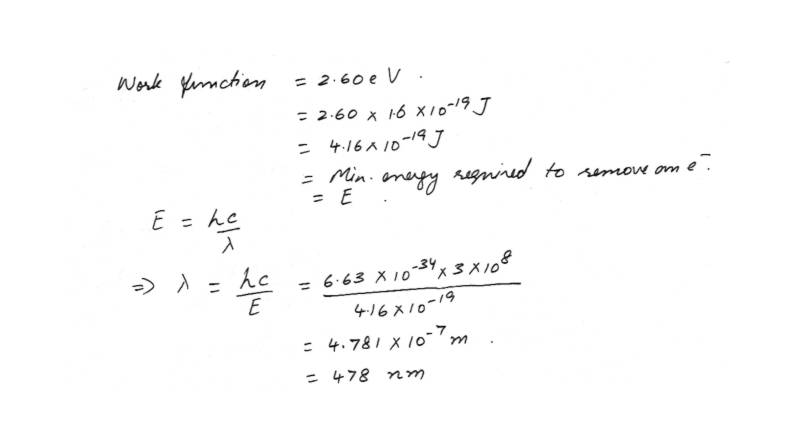 Work function = 2.60 e V .
= 2.60 x 1.6 x 10⁻¹⁹ J
= 4.16 x 10⁻¹⁹ J
= Min. energy required to remove an e⁻.
= E .
E = hc/λ
⇒ λ = hc/E = 6.63 x 10⁻³⁴ x 3 x 10⁸ / 4.16 x 10⁻¹⁹
= 4.781 x 10⁻⁷ m .
= 478 nm